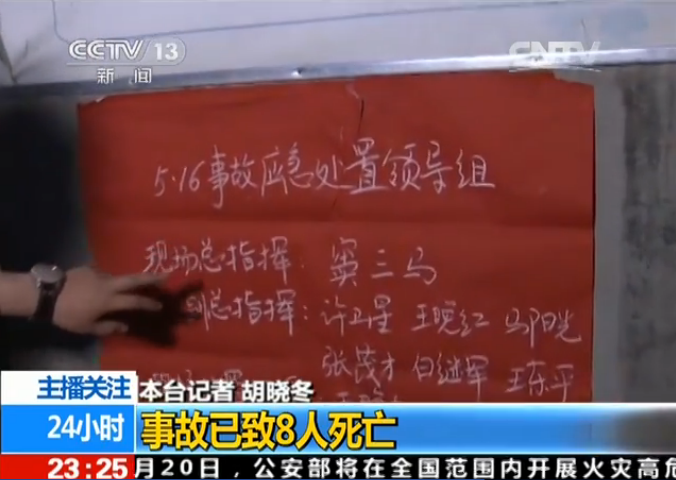 CCTV 13
新闻
CNTV
5·16事故应急处置领导组
现场总指挥: 窦三马
副总指挥: 许卫星 王晓红 马阳光
张茂才 白继军 王东平
主播关注
本台记者 胡晓冬
24小时
事故已致8人死亡
23:25 月20日，公安部将在全国范围内开展火灾高危